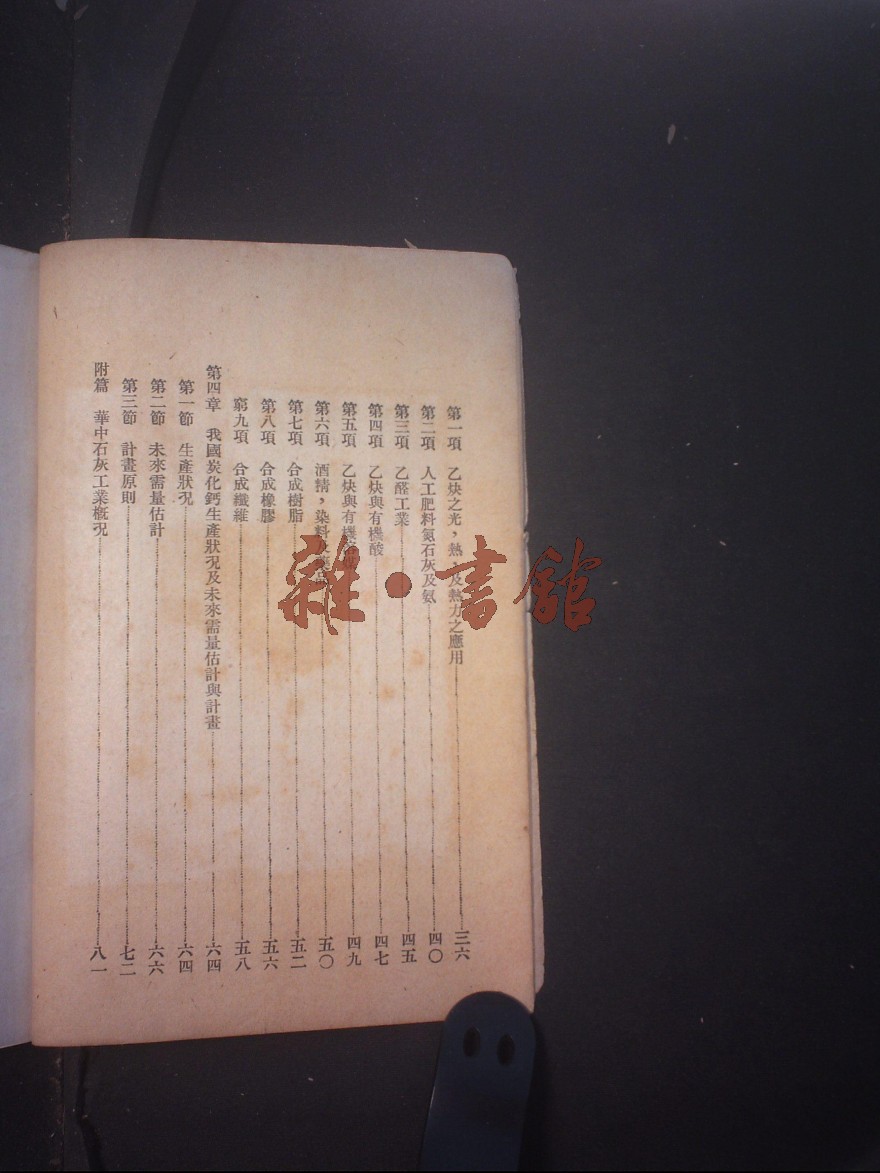 第一項　乙炔之光，熱，及熱力之應用……三六
第二項　人工肥料氮石灰及氨……四〇
第三項　乙醛工業……四五
第四項　乙炔與有機酸……四七
第五項　乙炔與有機……四九
第六項　酒精，染料及藥品……五〇
第七項　合成樹脂……五二
第八項　合成橡膠……五六
窮九項　合成纖維……五八
第四章　我國炭化鈣生產狀況及未來需量估計與計畫……六四
第一節　生產狀况……六四
第二節　未來需量估計……六六
第三節　計畫原則……七二
附篇　華中石灰工業槪况……八一
雜·書館